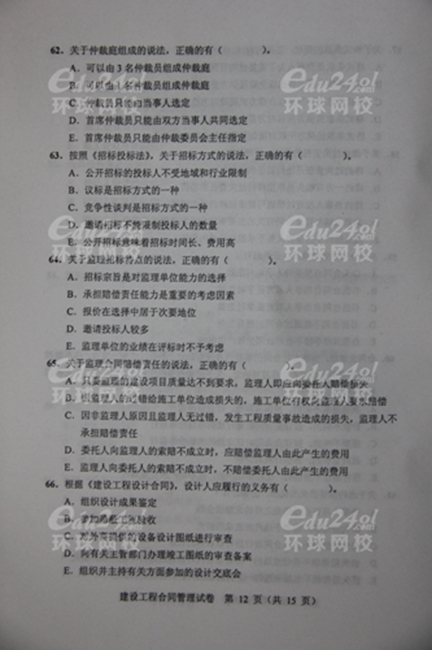 62．关于仲裁庭组成的说法，正确的有（　　）。
A．可以由 3 名仲裁员组成仲裁庭
B．可以由 1 名仲裁员组成仲裁庭
C．仲裁员只能由当事人选定
D．首席仲裁员只能由双方当事人共同选定
E．首席仲裁员只能由仲裁委员会主任指定
63．按照《招标投标法》，关于招标方式的说法，正确的有（　　）。
A．公开招标的投标人不受地域和行业限制
B．议标是招标方式的一种
C．竞争性谈判是招标方式的一种
D．邀请招标不需限制投标人的数量
E．公开招标意味着招标时间长、费用高
64．关于监理招标特点的说法，正确的有（　　）。
A．招标宗旨是对监理单位能力的选择
B．承担赔偿责任能力是重要的考虑因素
C．报价在选择中居于次要地位
D．邀请投标人较多
E．监理单位的业绩在评标时不予考虑
65．关于监理合同赔偿责任的说法，正确的有（　　）。
A．只要监理的建设项目质量达不到要求，监理人即应向委托人赔偿损失
B．因监理人的过错给施工单位造成的损失，施工单位有权向监理人索赔
C．因非监理人原因且监理人无过错，发生工程质量事故造成的损失，监理人不
承担赔偿责任
D．委托人向监理人的索赔不成立时，应赔偿监理人由此产生的费用
E．监理人向委托人的索赔不成立时，不赔偿委托人由此产生的费用
66．根据《建设工程设计合同》，设计人应履行的义务有（　　）。
A．组织设计成果鉴定
B．参加隐蔽工程验收
C．对外商提供的设备设计图纸进行审查
D．向有关主管部门办理竣工图纸的审查备案
E．组织并主持有关方面参加的设计交底会
建设工程合同管理试卷　第 12 页（共 15 页）
edu24ol
环球网校
edu24ol
环球网校
edu24ol
环球网校
edu24ol
环球网校
edu24ol
环球网校
edu24ol
环球网校
edu24ol
环球网校
edu24ol
环球网校